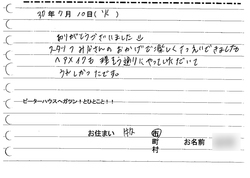 30年7月10日(火)
ありがとうございました
スタジオみなさんのおかげで楽しくすごいできました
ヘアメイクも 様もう通りにやっていただいて
うれしかったです。
ピーターハウスへガツン!とひとこと!!
お住まい 市 町 村 お名前